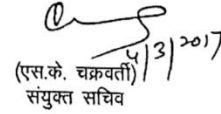 4/3/2017
(एस.के. चक्रवर्ती)
संयुक्त सचिव